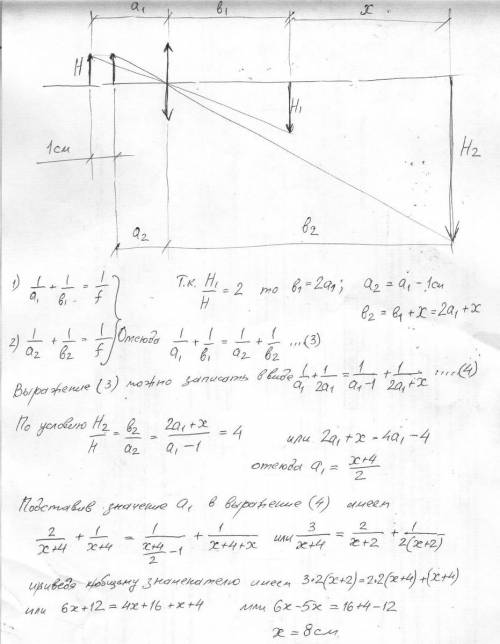 a₁ в₁ x
H H₁ H₂
1см
a₂ в₂
1) 1/a₁ + 1/в₁ = 1/f Т.к. H₁/H = 2 то в₁=2a₁; a₂ = a₁ - 1см
в₂ = в₁ + x = 2a₁ + x
2) 1/a₂ + 1/в₂ = 1/f Отсюда 1/a₁ + 1/в₁ = 1/a₂ + 1/в₂ ...(3)
Выражение (3) можно записать в виде 1/a₁ + 1/2a₁ = 1/a₁-1 + 1/2a₁+x ....(4)
По условию H₂/H = в₂/a₂ = 2a₁+x/a₁-1 = 4 или 2a₁+x=4a₁-4
отсюда a₁ = x+4/2
Подставив значение a₁ в выражение (4) имеем
2/x+4 + 1/x+4 = 1/(x+4/2 -1) + 1/x+4+x или 3/x+4 = 2/x+2 + 1/2(x+2)
приведя к общему знаменателю имеем 3·2(x+2)=2·2(x+4)+(x+4)
или 6x+12=4x+16+x+4 или 6x-5x=16+4-12
x=8см